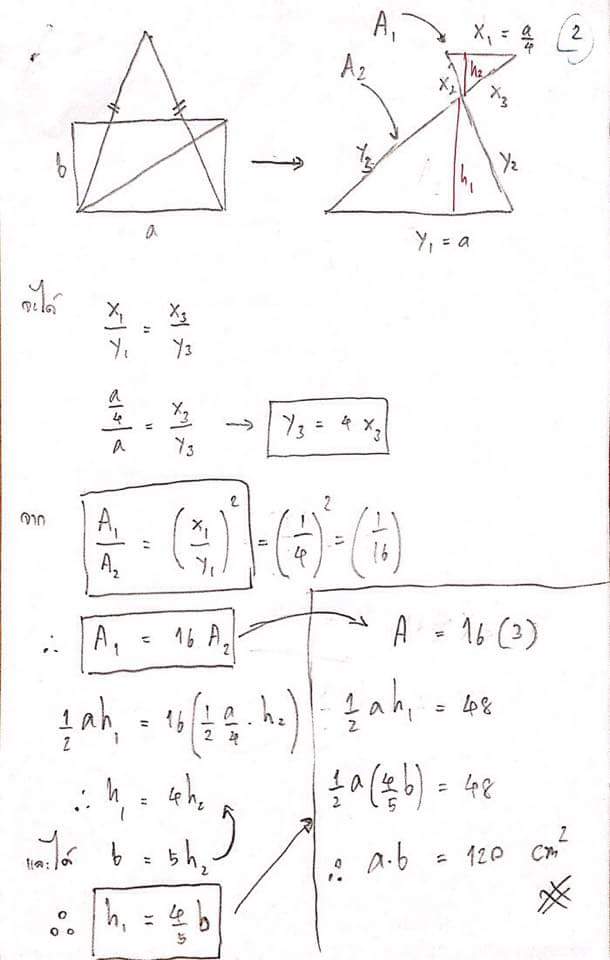 2
A₁ x₁ = a/4
A₂ h₂
x₂ x₃
b
y₃ h₁ y₂
a
y₁ = a
จะได้ x₁/y₁ = x₃/y₃
(a/4)/a = x₃/y₃ → y₃ = 4 x₃
จาก A₁/A₂ = (x₁/y₁)² = (1/4)² = (1/16)
∴ A₁ = 16 A₂
1/2 ah₁ = 16(1/2 a/4 · h₂)
∴ h₁ = 4h₂
และได้ b = 5h₂
∴ h₁ = 4/5 b
A = 16 (3)
1/2 a h₁ = 48
1/2 a(4/5 b) = 48
∴ a·b = 120 cm²